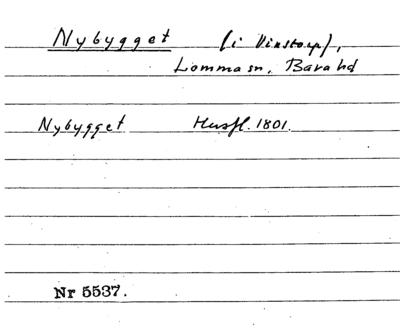 Nybygget (i Vinstorp),
Lomma sn, Bara hd
Nybygget Husfl. 1801.
Nr 5537.